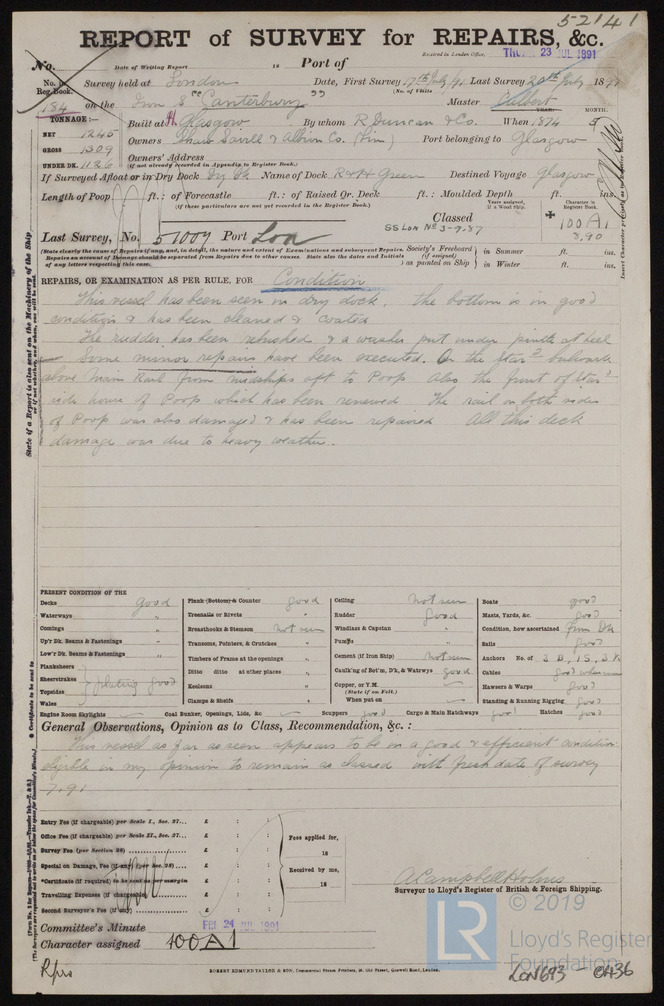 52141
REPORT of SURVEY for REPAIRS, &c.
Received in London Office, THUR. 23 JUL 1891
No. Date of Writing Report 18 Port of
No. in Reg. Book. Survey held at London Date, First Survey 17th July 91 Last Survey 20th July 1891
(No. of Visits
184 on the Iron S "Canterbury" Master Culbert
TONNAGE:— Built at Glasgow By whom R Duncan & Co. When 1874 5
YEAR. MONTH.
NET 1245
GROSS 1309 Owners Shaw Savill & Albion Co. (Lim) Port belonging to Glasgow
UNDER DK. 1126 Owners' Address
(if not already recorded in Appendix to Register Book.)
If Surveyed Afloat or in Dry Dock Dry Dk Name of Dock R & H Green Destined Voyage Glasgow
Length of Poop ft.: of Forecastle ft.: of Raised Qr. Deck ft.: Moulded Depth ft. ins.
(If these particulars are not yet recorded in the Register Book.)
Years assigned, if a Wood ship. Character in Register Book.
Classed SS Lon No 3-9.87 100A1
3,90
Last Survey, No. 51009 Port Lon
(State clearly the cause of Repairs if any, and, in detail, the nature and extent of Examinations and subsequent Repairs.
Repairs on account of Damage should be separated from Repairs due to other causes. State also the dates and Initials
of any letters respecting this case.)
Society's Freeboard (if assigned) as painted on Ship in Summer ft. ins.
in Winter ft. ins.
REPAIRS, OR EXAMINATION AS PER RULE, FOR Condition
This vessel has been seen in dry dock. The bottom is in good
condition & has been cleaned & coated
The rudder has been rebushed & a washer put under pintle at heel
Some minor repairs have been executed. On the Starbd bulwark
above Main Rail from midships aft to Poop Also the front of Starbd
side house of Poop which has been renewed The rail on both sides
of Poop was also damaged & has been repaired All this deck
damage was due to heavy weather.
PRESENT CONDITION OF THE
Decks good
Waterways "
Comings "
Up'r Dk. Beams & Fastenings "
Low'r Dk. Beams & Fastenings "
Planksheers
Sheerstrakes
Topsides plating good
Wales
Engine Room Skylights
Plank (Bottom) & Counter good
Treenails or Rivets "
Breasthooks & Stemson not seen
Transoms, Pointers, & Crutches "
Timbers of Frame at the openings "
Ditto ditto at other places "
Keelsons "
Clamps & Shelfs "
Coal Bunker, Openings, Lids, &c
Ceiling not seen
Rudder good
Windlass & Capstan "
Pumps "
Cement (if Iron Ship) not seen
Caulk'g of Bot'm, D'k, & Waterways good
Copper, or Y.M.
(State if on Felt.)
When put on
Scuppers good Cargo & Main Hatchways good
Boats good
Masts, Yards, &c. good
Condition, how ascertained from Dk
Sails good
Anchors No. of 3 B, 1 S, 3 K
Cables good
Hawsers & Warps good
Standing & Running Rigging good
Hatches good
General Observations, Opinion as to Class, Recommendation, &c. :
This vessel as far as seen appears to be in a good & efficient condition
eligible in my opinion to remain as classed with fresh date of survey
7.91
Entry Fee (if chargeable) per Scale I., Sec. 27... £ : :
Office Fee (if chargeable) per Scale II., Sec. 27... £ : :
Survey Fee (per Section 28) £ : :
Special on Damage, Fee (if any) (per Sec. 28)... £ : :
*Certificate (if required) to be sent as per margin
Travelling Expenses (if chargeable) £ : :
Second Surveyor's Fee (if any) £ : :
Fees applied for,
18
Received by me,
18
A Campbell Holms
Surveyor to Lloyd's Register of British & Foreign Shipping.
Committee's Minute FRI 24 JUL 1891
Character assigned 100A1
ROBERT EDMUND TAYLOR & SON, Commercial Steam Printers, 19, Old Street, Goswell Road, London.
LR
© 2019
Lloyd's Register
Foundation
LON693 - 0436